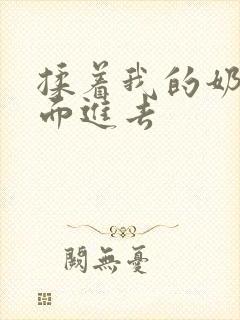 揉着我的奶
而进去
阙無憂